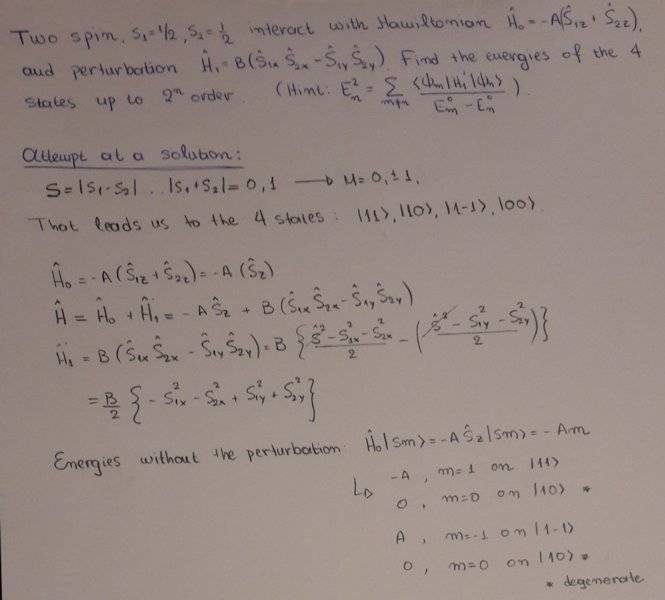 Two spin, S₁=1/2, S₂=1/2 interact with Hamiltonian Ĥ₀=-A(Ŝ₁z+Ŝ₂z),
and perturbation Ĥ₁=B(Ŝ₁xŜ₂x-Ŝ₁yŜ₂y). Find the energies of the 4
states up to 2ⁿ order. (Hint: E²ₙ = Σ_{m≠n} ⟨ψₘ|H₁|ψₙ⟩/(E⁰ₘ-E⁰ₙ)).
Attempt at a solution:
S=|S₁-S₂|...|S₁+S₂|=0,1 → M=0,±1.
That leads us to the 4 states: |11⟩,|10⟩,|1-1⟩,|00⟩.
Ĥ₀=-A(Ŝ₁z+Ŝ₂z)=-A(Ŝz)
Ĥ=Ĥ₀+Ĥ₁=-AŜz+B(Ŝ₁xŜ₂x-Ŝ₁yŜ₂y)
Ĥ₁=B(Ŝ₁xŜ₂x-Ŝ₁yŜ₂y)=B{(Ŝ²-S²₁x-S²₂x)/2-((Ŝ²-S²₁y-S²₂y)/2)}
=B/2{-S²₁x-S²₂x+S²₁y+S²₂y}
Energies without the perturbation: Ĥ₀|sm⟩=-AŜz|sm⟩=-Am
-A, m=1 on |11⟩
0, m=0 on |10⟩ *
A, m=-1 on |1-1⟩
0, m=0 on |10⟩ *
* degenerate